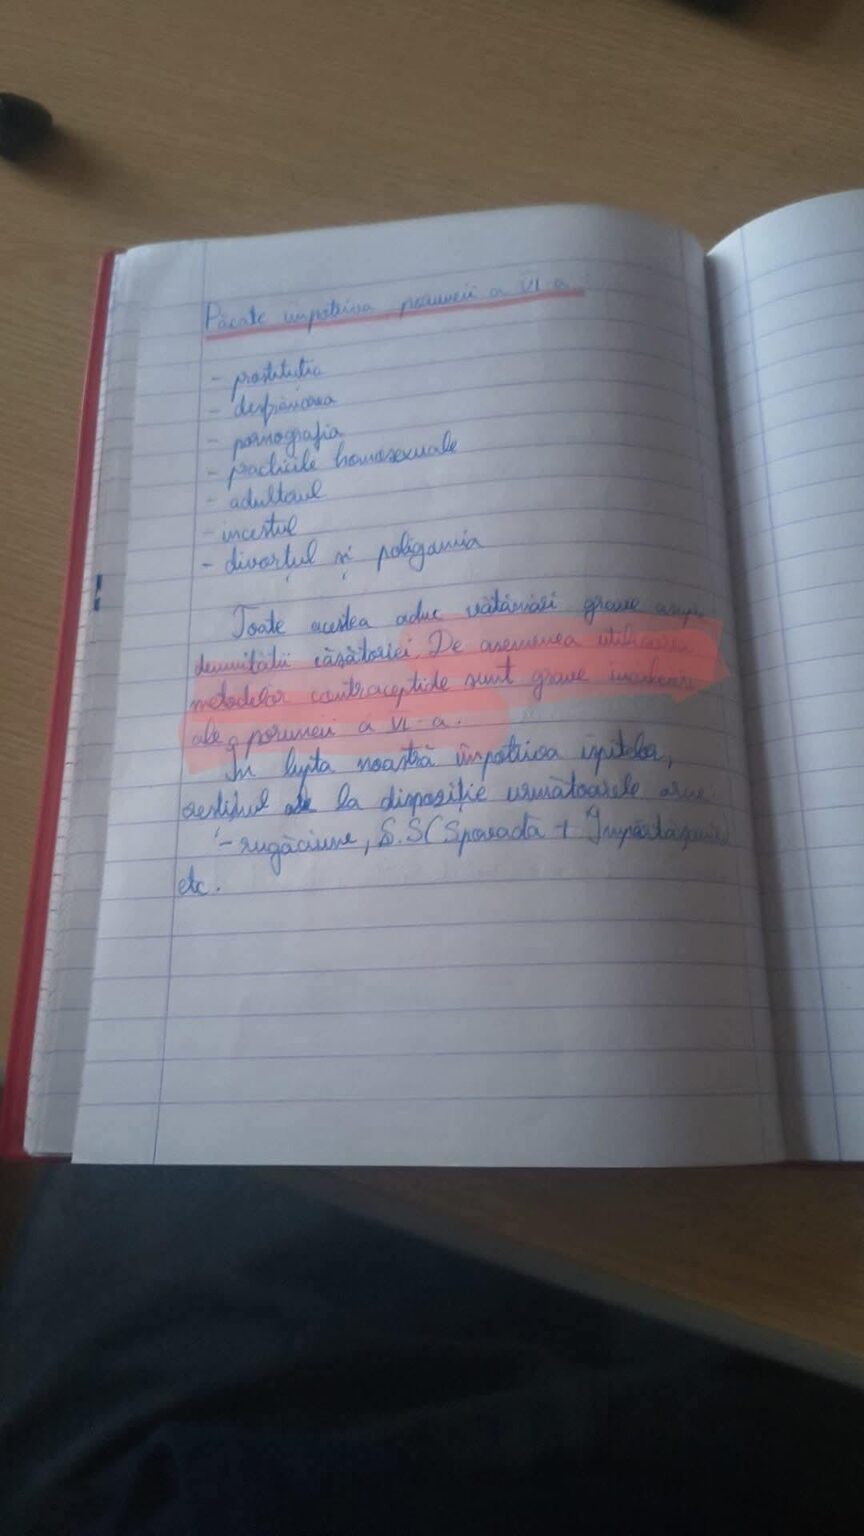 Păcate împotriva poruncii a VI-a.
- prostitutia
- desfrânarea
- pornografia
- practicile homosexuale
- adulterul
- incestul
- divorțul și poligamia
Toate acestea aduc vătămări grave
demnității căsătoriei. De asemenea utilizarea
metodelor contraceptide sunt grave
ale poruncii a VI-a.
În lupta noastră împotriva ispitelor,
la dispoziție următoarele
- rugăciune, S.S (Spovadă + Împărtășanie
etc.